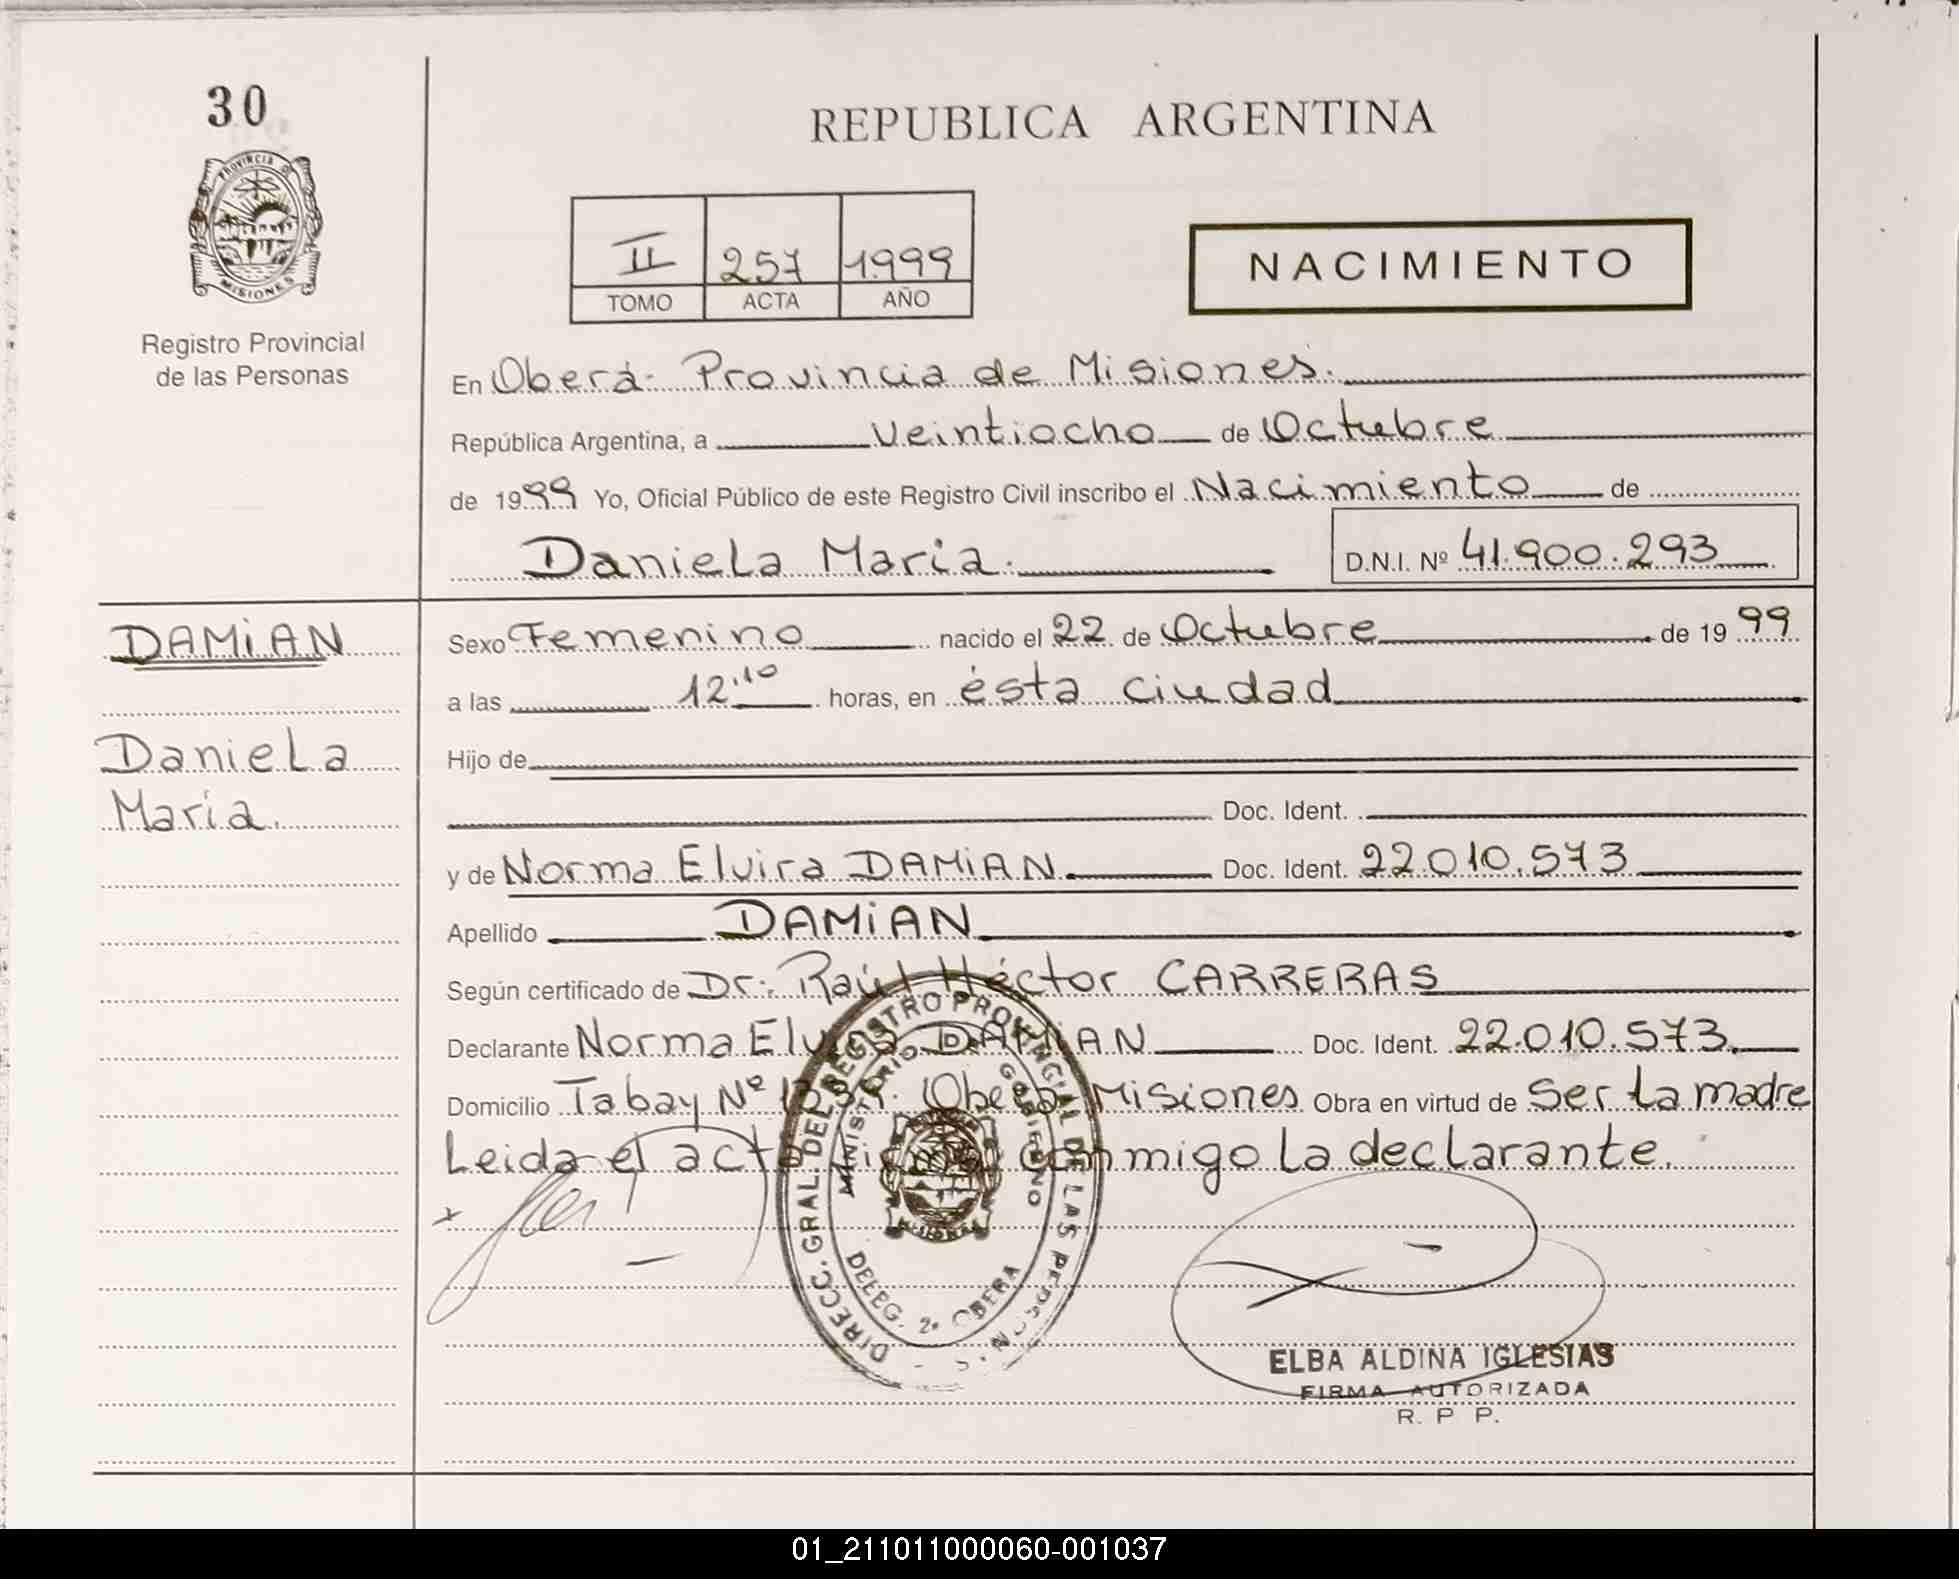 30
REPUBLICA ARGENTINA
PROVINCIA D MISIONES
Registro Provincial
de las Personas
II 257 1999
TOMO ACTA AÑO
NACIMIENTO
En Oberá- Provincia de Misiones.
República Argentina, a Veintiocho de Octubre
de 1999 Yo, Oficial Público de este Registro Civil inscribo el Nacimiento de
Daniela Maria. D.N.I. Nº 41.900.293
DAMiAN
Daniela
María.
Sexo Femenino nacido el 22 de Octubre de 1999
a las 12:10 horas, en ésta ciudad
Hijo de
Doc. Ident.
y de Norma Elvira DAMiAN Doc. Ident. 22.010.573
Apellido DAMiAN
Según certificado de Dr: Raúl Héctor CARRERAS
Declarante Norma Elvira DAMiAN Doc. Ident. 22.010.573.
Domicilio Tabay Nº Oberá Misiones Obra en virtud de Ser la madre
Leida el acta conmigo la declarante.
DIRECC. GRAL. DEL REGISTRO PROVINCIAL DE LAS PERSONAS
MINISTERIO DE GOBIERNO
DELEG. 2ª OBERA
ELBA ALDINA IGLESIAS
FIRMA AUTORIZADA
R. P P.
01_211011000060-001037